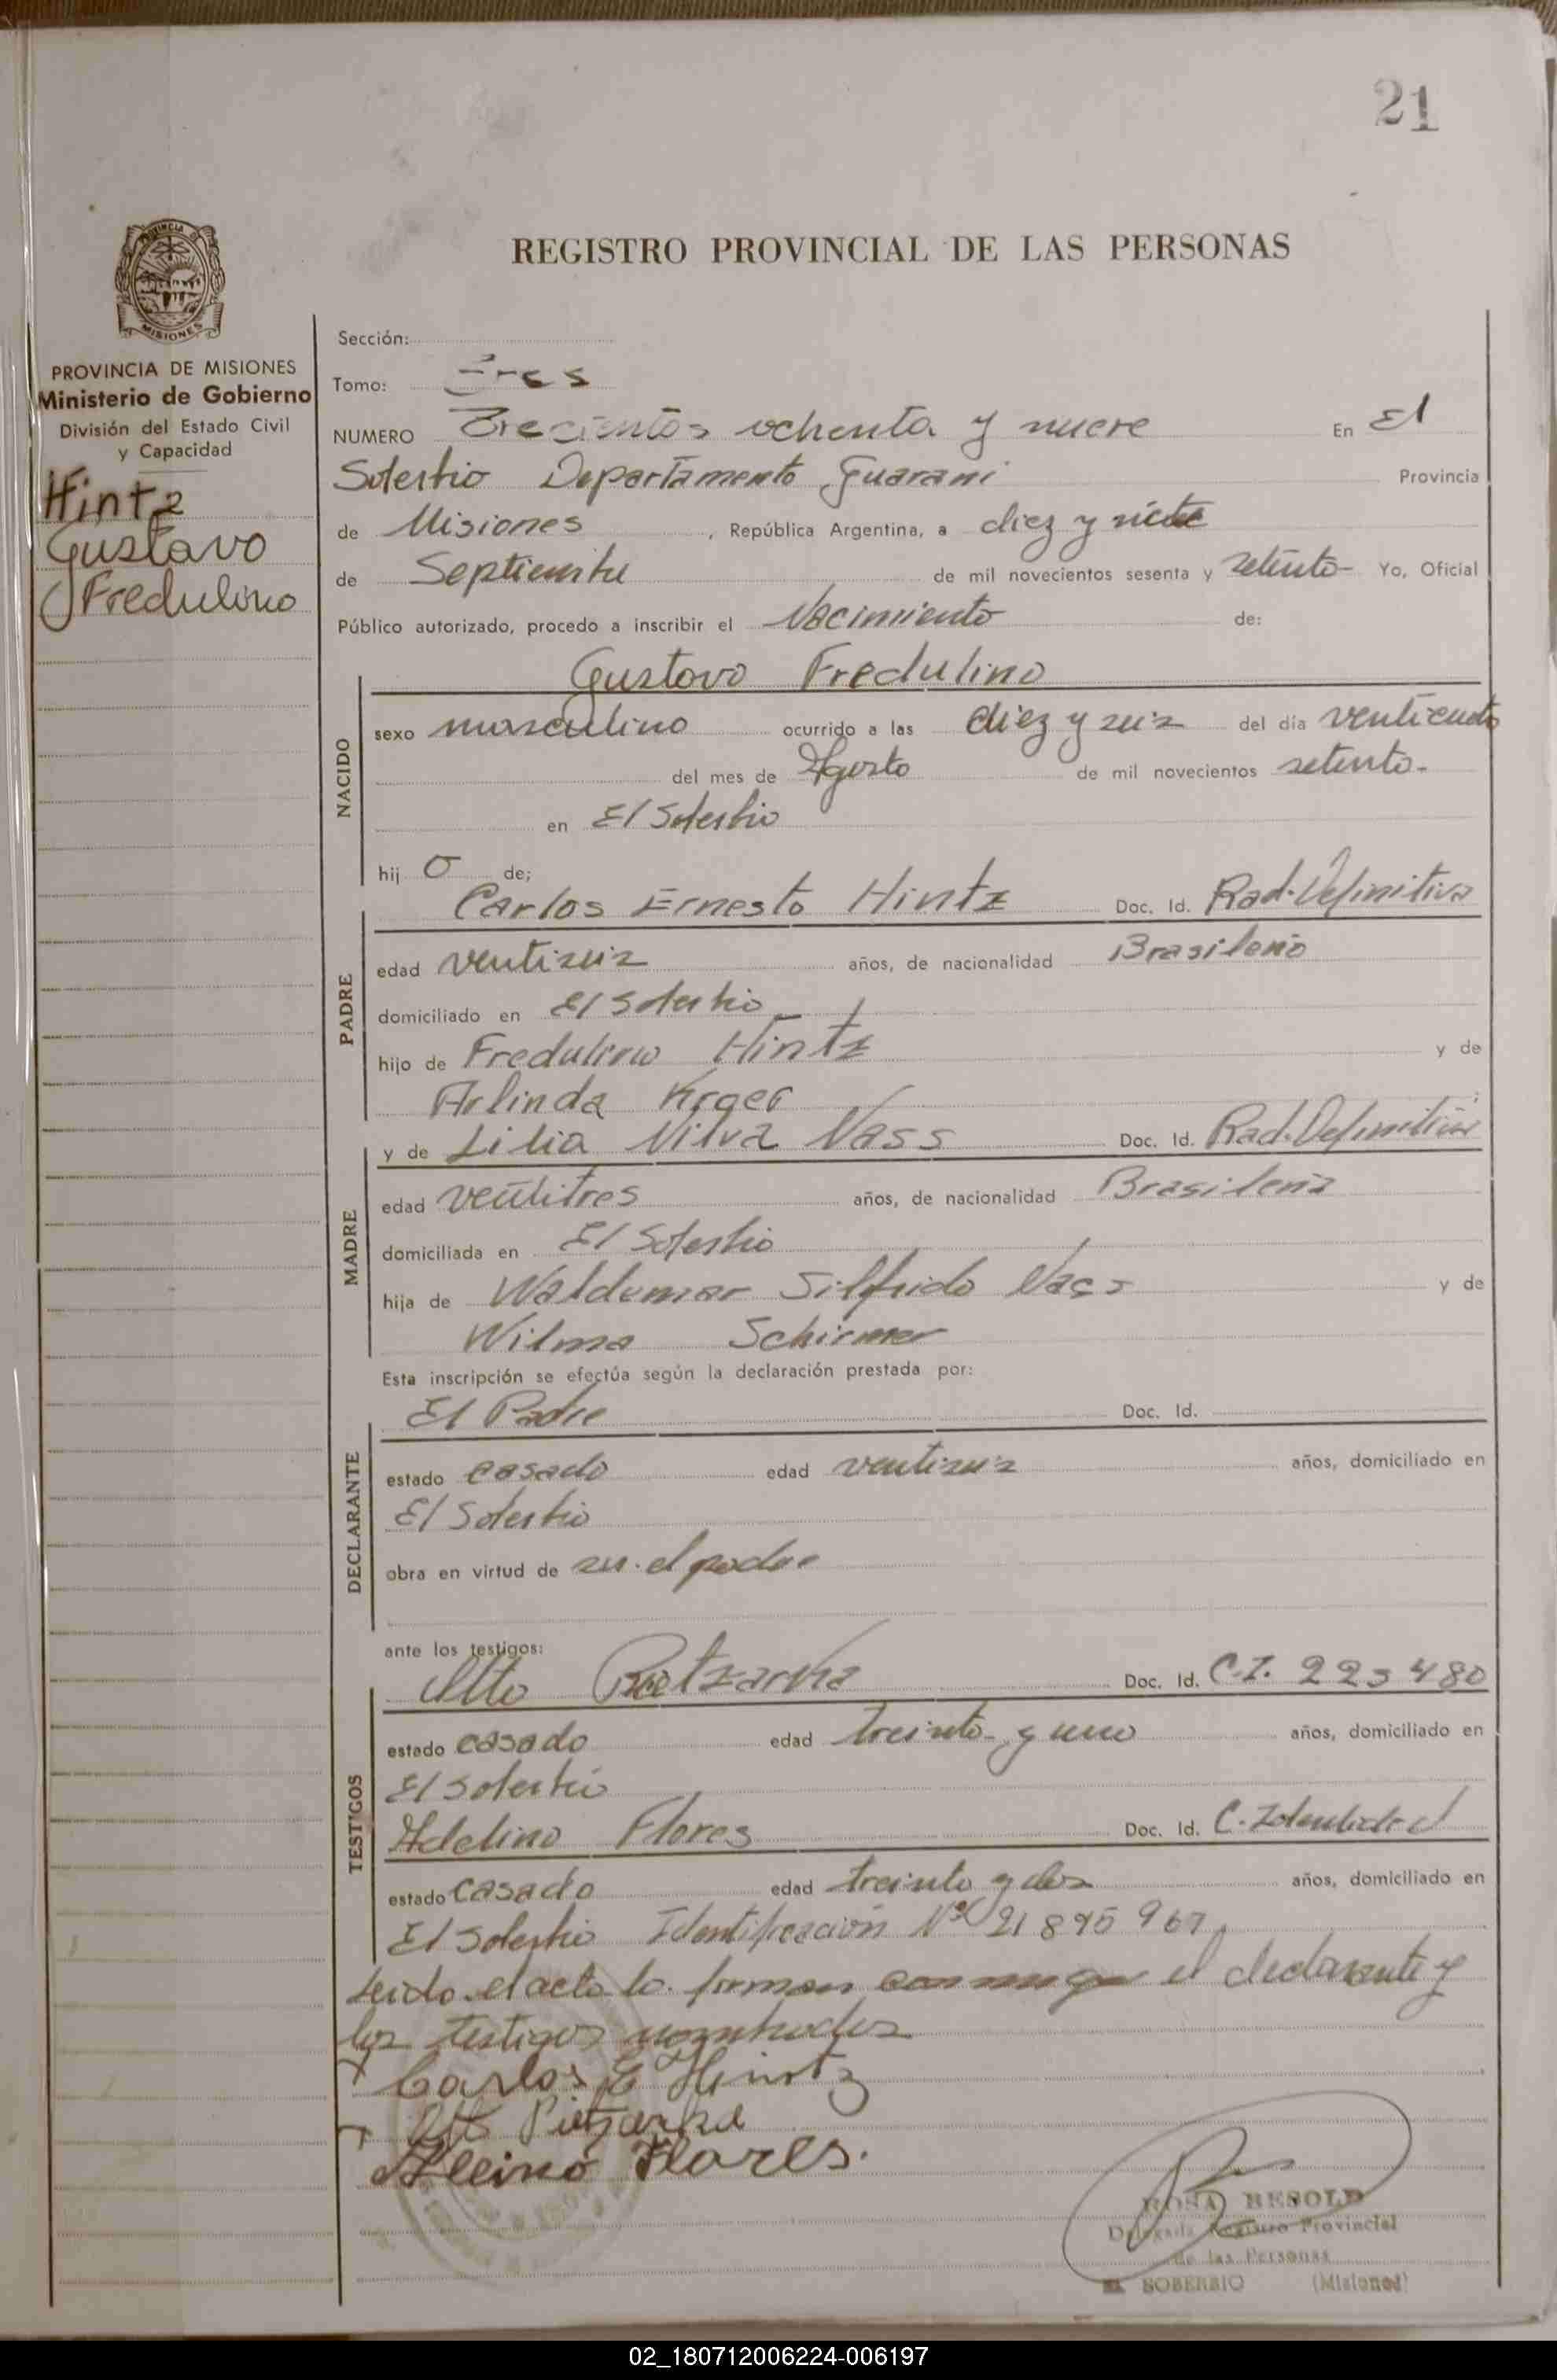 21
REGISTRO PROVINCIAL DE LAS PERSONAS
PROVINCIA DE MISIONES
PROVINCIA DE MISIONES
Ministerio de Gobierno
División del Estado Civil
y Capacidad
Hintz
Gustavo
Fredulino
Sección:
Tomo: Tres
NUMERO Trecientos ochenta y nueve En El
Soberbio Departamento Guarani Provincia
de Misiones, República Argentina, a diez y siete
de Septiembre de mil novecientos sesenta y setenta Yo, Oficial
Público autorizado, procedo a inscribir el Nacimiento de:
Gustavo Fredulino
NACIDO
sexo masculino ocurrido a las diez y seis del día venticuatro
del mes de Agosto de mil novecientos setenta-
en El Soberbio
hij o de;
Carlos Ernesto Hintz Doc. Id. Rad. Definitiva
PADRE
edad ventiseis años, de nacionalidad Brasileño
domiciliado en El Soberbio
hijo de Fredulino Hintz y de
Arlinda
y de Lilia Nilva Nass Doc. Id. Rad. Definitiva
MADRE
edad ventitres años, de nacionalidad Brasileña
domiciliada en El Soberbio
hija de Waldemar Silfrido Nass y de
Wilma Schirmer
Esta inscripción se efectúa según la declaración prestada por:
El Padre Doc. Id.
DECLARANTE
estado casado edad ventiseis años, domiciliado en
El Soberbio
obra en virtud de ser el padre
ante los testigos:
Otto Doc. Id. C.I. 223480
TESTIGOS
estado casado edad treinta y uno años, domiciliado en
El Soberbio
Adelino Flores Doc. Id. C.
estado casado edad treinta y dos años, domiciliado en
El Soberbio Identificación Nº 21895967
Leido el acta la firman el declarante y
los testigos nombrados
Carlos E Hintz
Otto Pietzarka
Flores.
ROSA BESOLD
Delegada Registro Provincial
de las Personas
EL SOBERBIO (Misiones)
02_180712006224-006197